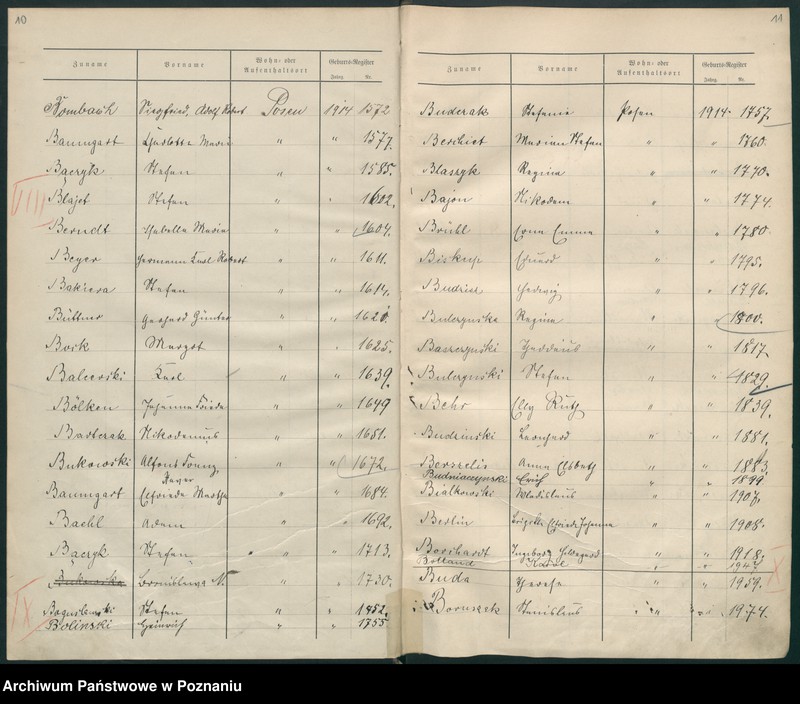 10
Zuname Vorname Wohn- oder Aufenthaltsort Geburts-Register Jahrg. Nr.
Rombach Siegfried, Adolf Robert Posen 1914 1572
Baumgart Charlotte Maria " " 1577.
Bączyk Stefan " " 1585.
VIII
Blajet Stefan " " 1602.
Berndt Isabella Maria " " 1604.
Beyer Hermann Karl Robert " " 1611.
Bakiera Stefan " " 1614.
Büttner Gerhard Günter " " 1620.
Boik Margot " " 1625.
Balcerski Karl " " 1639.
Bölken Johanna Frieda " " 1649
Bartczak Nikodemus " " 1651.
Bukowski Alfons Franz Xaver " " 1672.
Baumgart Elfriede Martha " " 1684.
Bachl Adam " " 1692.
Bączyk Stefan " " 1713.
Bukowska Bronislawa M. " " 1730.
IX
Boguslawski Stefan " " 1752.
Bolinski Heinrich " " 1755
11
Zuname Vorname Wohn- oder Aufenthaltsort Geburts-Register Jahrg. Nr.
Buderak Stefanie Posen 1914 1757.
Berchiet Marian Stefan " " 1760.
Blaszyk Regina " " 1770.
Bajon Nikodem " " 1774.
Brühl Erna Emma " " 1780.
Biskup Eduard " " 1795.
Hedwig " " 1796.
Bulczynska Regina " " 1800.
Baszczynski Thaddäus " " 1817.
Bulczynski Stefan " " 1829.
Behr Elly Ruth " " 1839.
Budzinski Leonhard " " 1881.
Berszelis Anna Elsbeth " " 1883.
Budniaczynski Erich " " 1899
Bialkowski Wladislaus " " 1907.
Berlin Brigitte Elfriede Johanna " " 1908.
Borchardt Ingeborg Hildegard " " 1918.
Bolland Karol " " 1947
X
Buda Therese " " 1959.
Boruszek Stanislaus " " 1974.
Archiwum Państwowe w Poznaniu